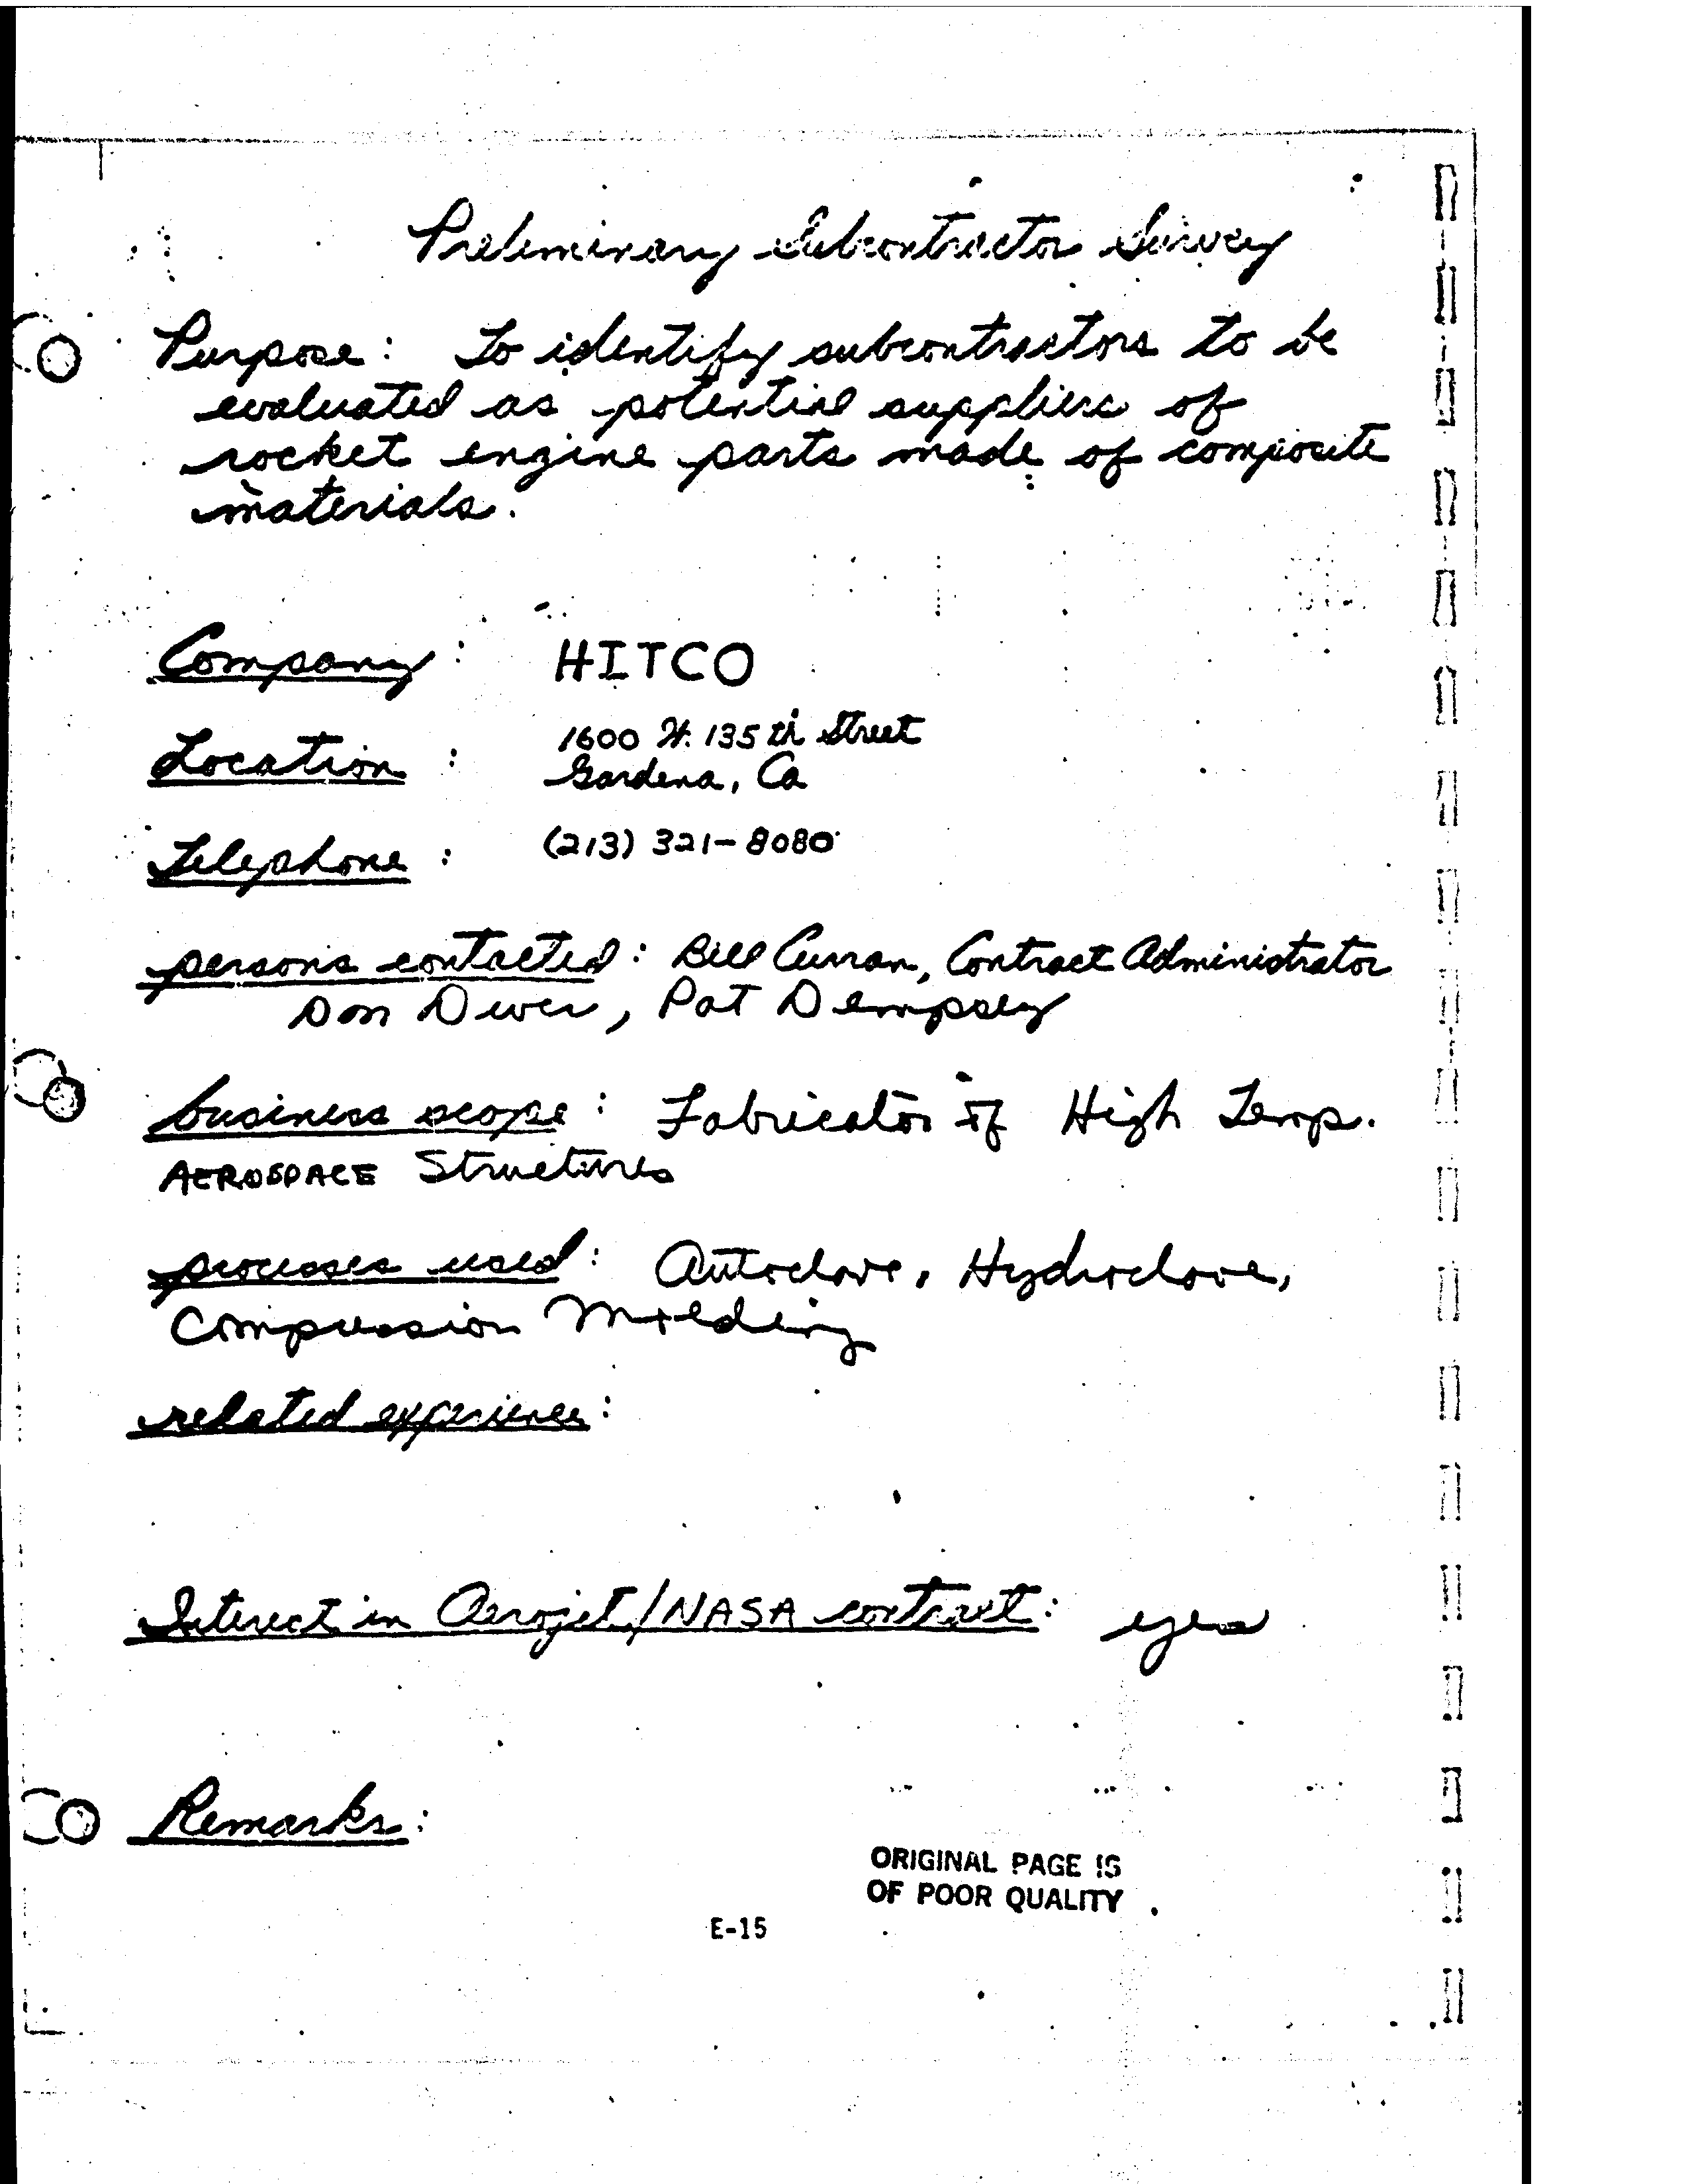 Preliminary Subcontractor Survey
Purpose: To identify subcontractors to be
evaluated as potential suppliers of
rocket engine parts made of composite
materials.
Company: HITCO
Location: 1600 W. 135th Street
Gardena, Ca
Telephone: (213) 321-8080
persons contacted: Bill Curran, Contract Administrator
Don Dwer, Pat Dempsey
business scope: Fabricator of High Temp.
AEROSPACE Structures
processes used: Autoclave, Hydroclave,
Compression Molding
related experience:
Interest in Aerojet/NASA contract: yes
Remarks:
ORIGINAL PAGE IS
OF POOR QUALITY
E-15